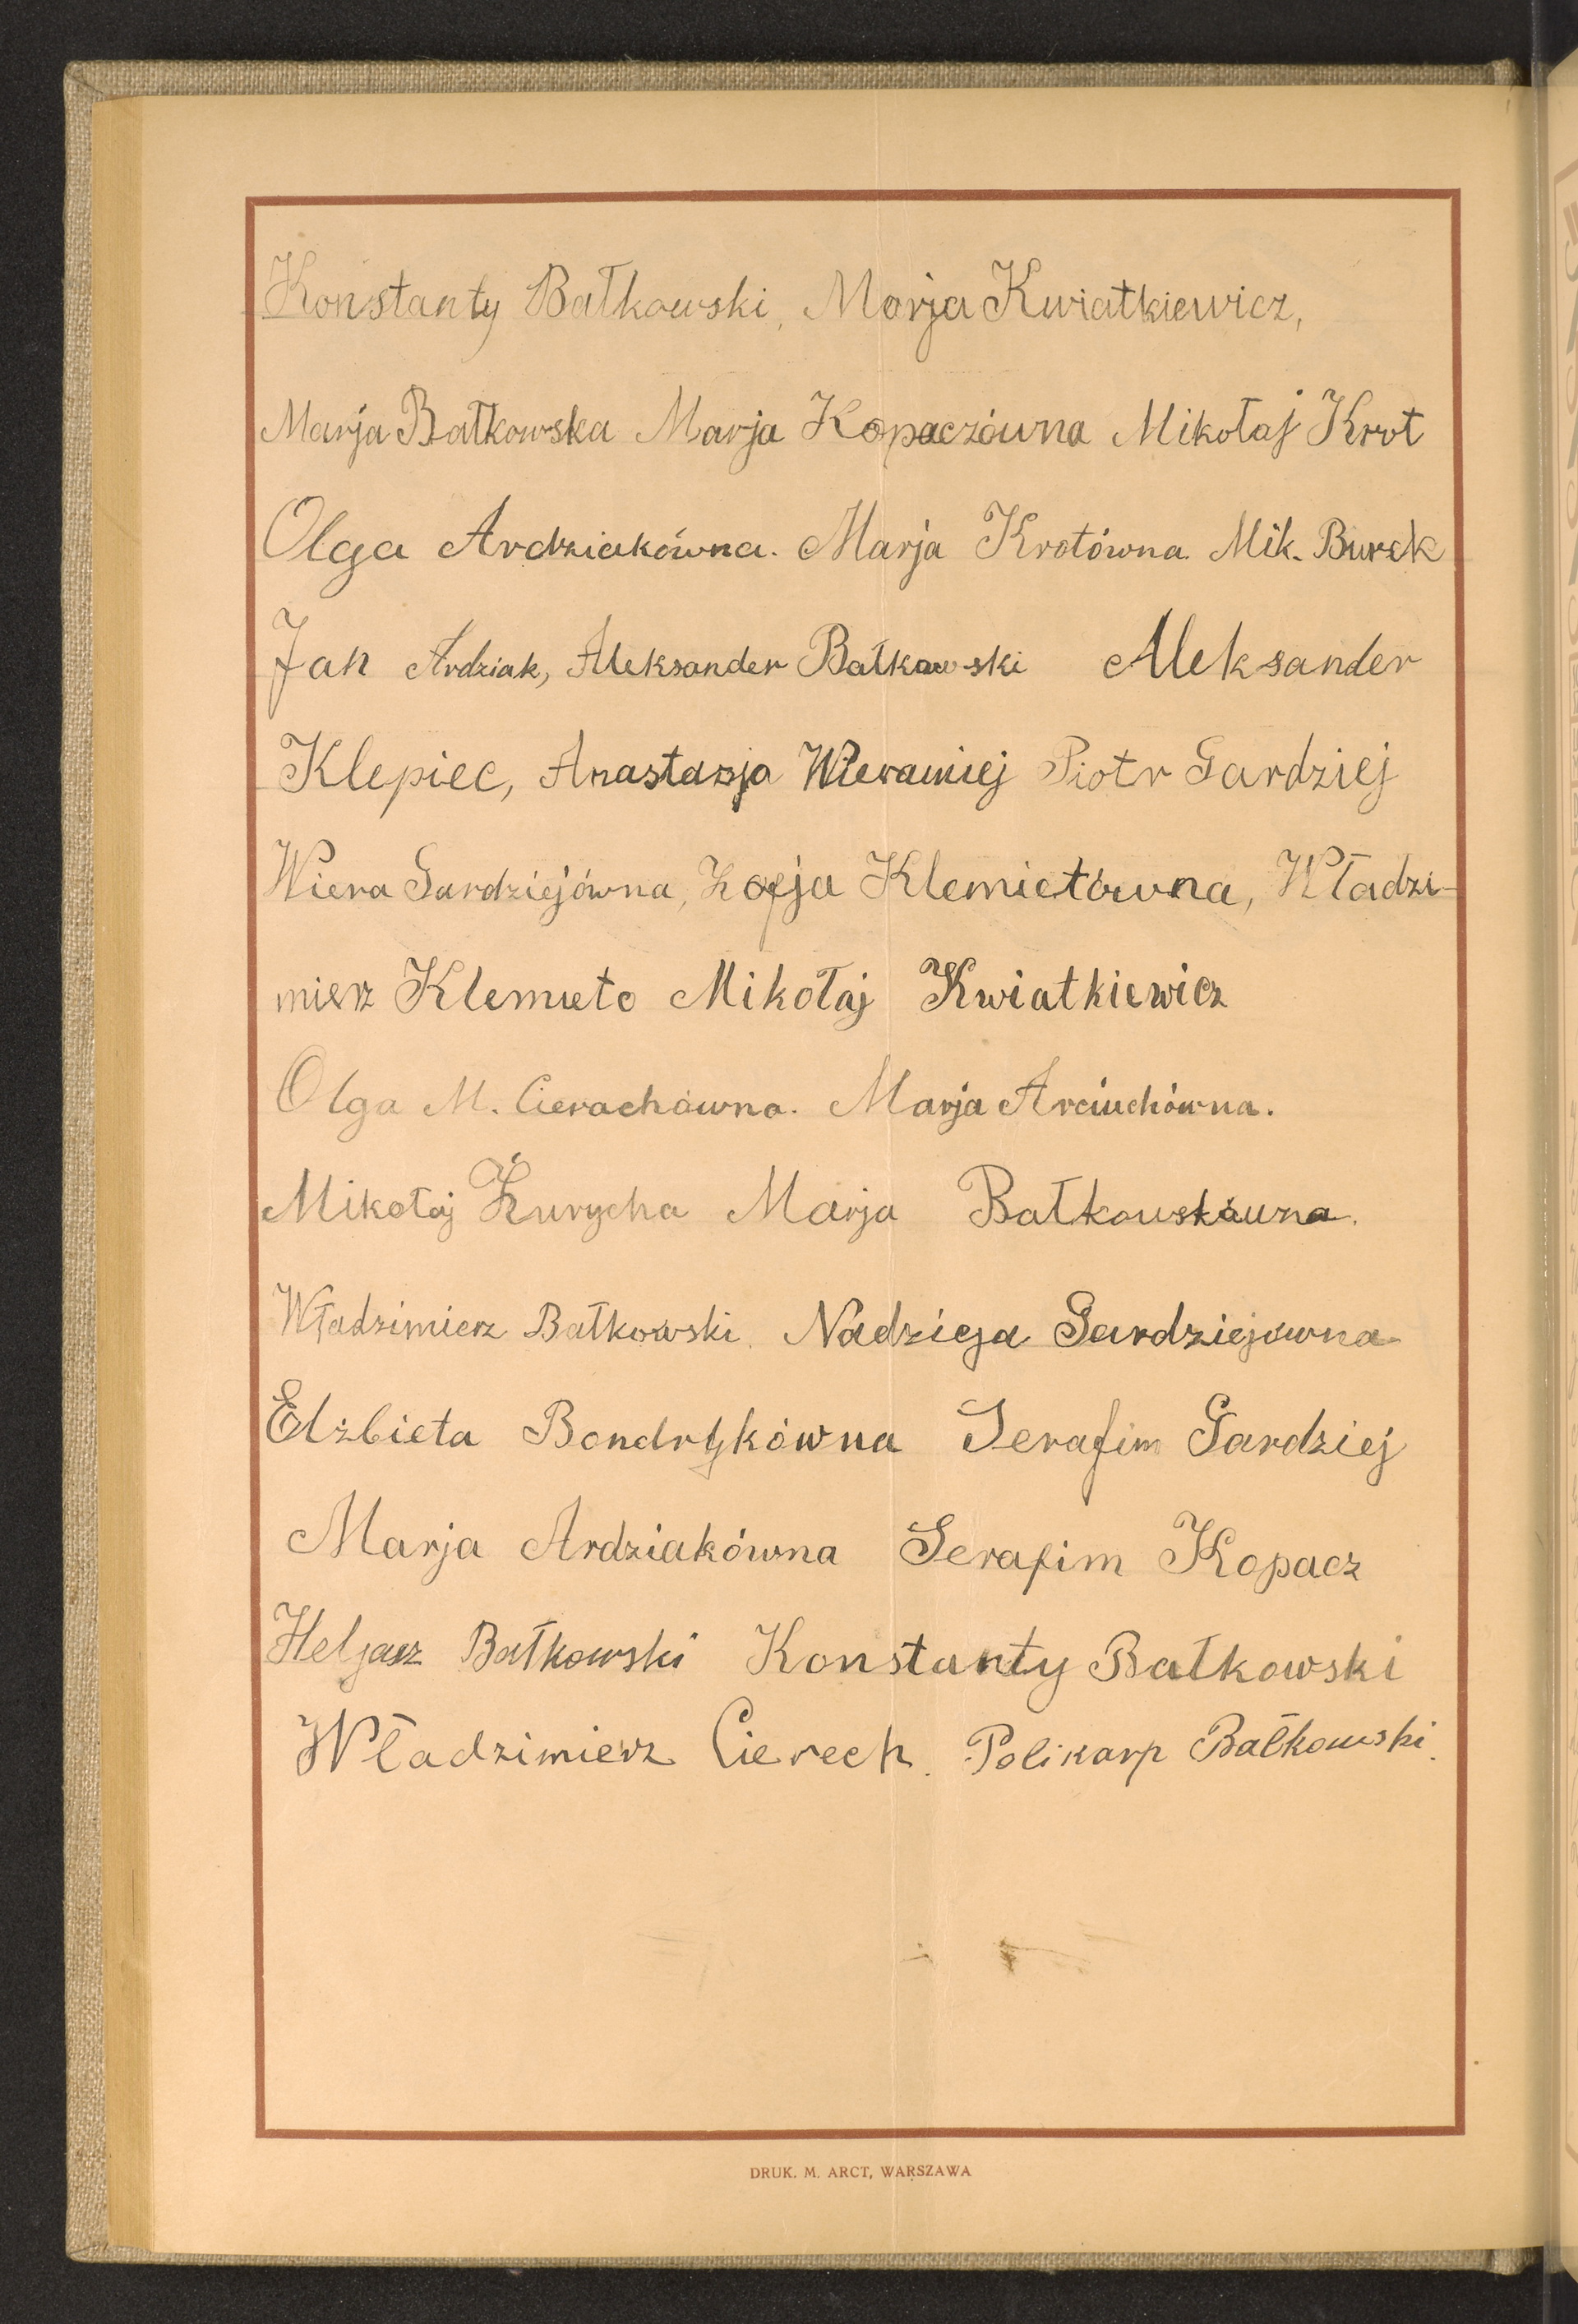 Konstanty Bałkowski, Marja Kwiatkiewicz,
Marja Bałkowska Marja Kopaczówna Mikołaj Krot
Olga Ardziakówna. Marja Krotówna Mik. Burek
Jan Ardziak, Aleksander Bałkowski Aleksander
Klepiec, Anastazja Gardziej Piotr Gardziej
Wiera Gardziejówna, Zofja Klemietówna, Władzi-
mierz Klemieto Mikołaj Kwiatkiewicz
Olga M. Cierachówna. Marja Arciuchówna.
Mikołaj Żurycha Marja Bałkowskówna.
Władzimierz Bałkowski. Nadzieja Gardziejówna
Elżbieta Bondrykówna Serafim Gardziej
Marja Ardziakówna Serafim Kopacz
Heljasz Bałkowski Konstanty Bałkowski
Władzimierz Cierech. Polikarp Bałkowski.
DRUK. M. ARCT, WARSZAWA